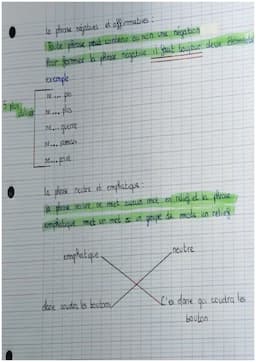 la phrase négatives et affirmatives :
Toute phrase peut contenir ou non une négation
Pour former la phrase négative il faut toujours deux éléments
exemple
ne.... pas
ne.... plus
ne.... guère
ne.... jamais
ne.... point
la phrase neutre et emphatique :
la phrase neutre ne met aucun mot en relief et la phrase
emphatique met un mot ou un groupe de mots en relief
emphatique
neutre
diane coudra les boutons
C'es diane qui coudra les
bouton